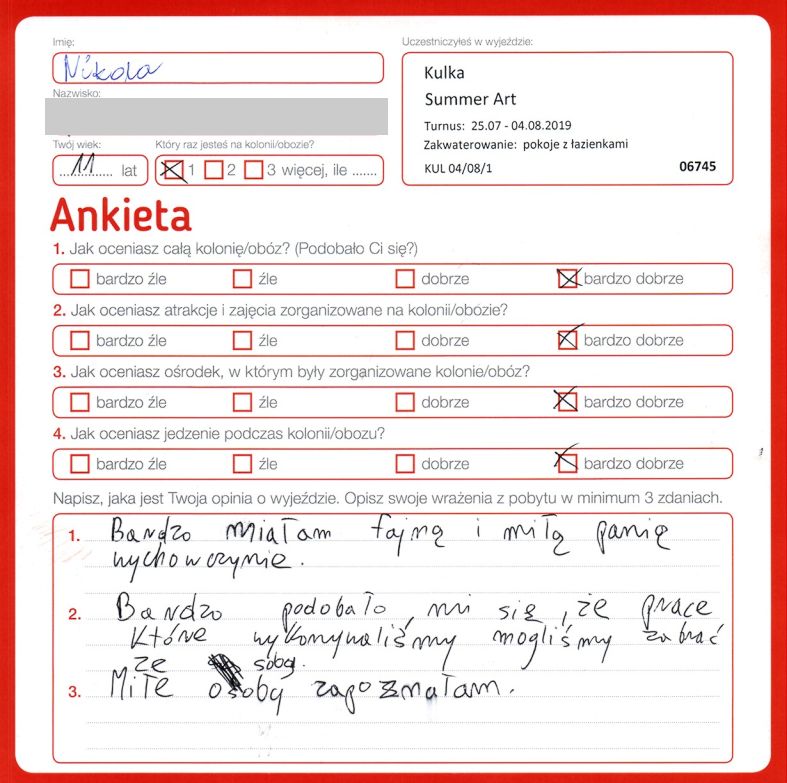 Imię:
Nikola
Nazwisko:
Twój wiek:
11 lat
Który raz jesteś na kolonii/obozie?
1 2 3 więcej, ile .......
Uczestniczyłeś w wyjeździe:
Kulka
Summer Art
Turnus: 25.07 - 04.08.2019
Zakwaterowanie: pokoje z łazienkami
KUL 04/08/1 06745
Ankieta
1. Jak oceniasz całą kolonię/obóz? (Podobało Ci się?)
bardzo źle źle dobrze bardzo dobrze
2. Jak oceniasz atrakcje i zajęcia zorganizowane na kolonii/obozie?
bardzo źle źle dobrze bardzo dobrze
3. Jak oceniasz ośrodek, w którym były zorganizowane kolonie/obóz?
bardzo źle źle dobrze bardzo dobrze
4. Jak oceniasz jedzenie podczas kolonii/obozu?
bardzo źle źle dobrze bardzo dobrze
Napisz, jaka jest Twoja opinia o wyjeździe. Opisz swoje wrażenia z pobytu w minimum 3 zdaniach.
1. Bardzo miałam fajną i miłą panię
wychowczynie.
2. Bardzo podobało mi się, że prace
które wykonywaliśmy mogliśmy zabrać
ze sobą.
3. Miłe osoby zapoznałam.